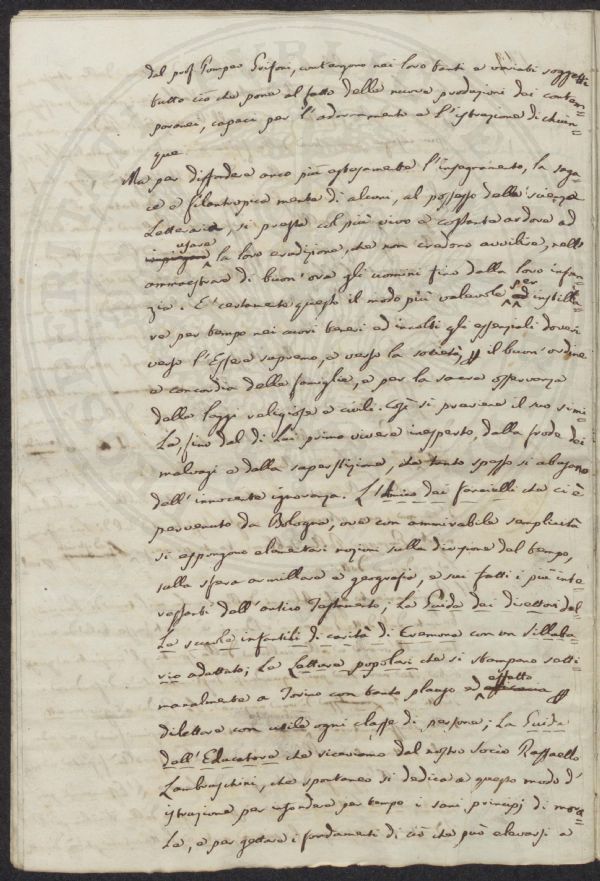 dal prof Pompeo Grifoni, contengono nei loro tanti e variati soggetti
tutto ciò che pone al fatto delle nuove produzioni dei contem=
poranei, capaci per l'adornamento e l'istruzione di chiun=
que.
Ma per diffondere anco più estesamente l'insegnamento, la saga=
ce e filantropica mente di alcuni, al possesso delle scienze
Letterarie, si presta col più vivo e costante ardore ad
usare la loro erudizione, che non credono avvilire, nello
ammaestrare di buon'ora gli uomini fino dalla loro infan=
zia. E' certamente questo il modo più valevole per instilla=
re per tempo nei cuori teneri ed incolti gli essenziali doveri
verso l'Essere supremo, e verso la società, il buon'ordine
e concordia della famiglia, e per la sacra osservanza
delle leggi religiose e civili. Così si previene il suo simi=
le, fino dal di lui primo vivere inesperto, dalla frode dei
malvagi e dalla superstizione, che tanto spesso si abusano
dell'innocente ignoranza. L'Amico dei fanciulli che ci è
pervenuto da Bologna, ove con ammirabile semplicità
si espongono elementari nozioni sulla divisione del tempo,
sulla sfera armillare e geografia, e sui fatti i più inte=
ressanti dell'antico Testamento; La Guida dei direttori del=
le scuole infantili di carità di Cremona con un Sillaba=
rio adattato; Le Letture popolari che si stampano setti=
manalmente a Torino con tanto plauso ed effetto
dilettare con utile ogni classe di persone; La Guida
dell'Educatore che riceviamo dal nostro socio Raffaello
Lambruschini, che spontaneo si dedica a questo modo d'
istruzione per infondere per tempo i sani principj di mora=
le, e per gettare i fondamenti di ciò che può elevarsi a